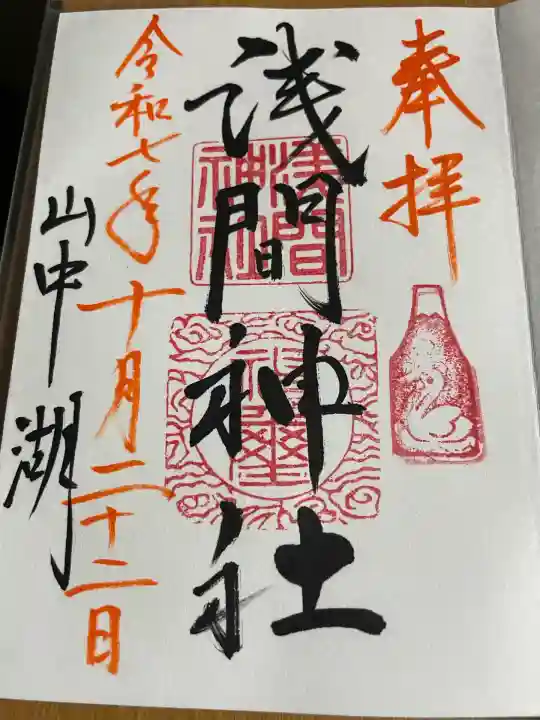 奉拝
浅間神社
浅間
神社
令和七年十月二十二日
山中湖